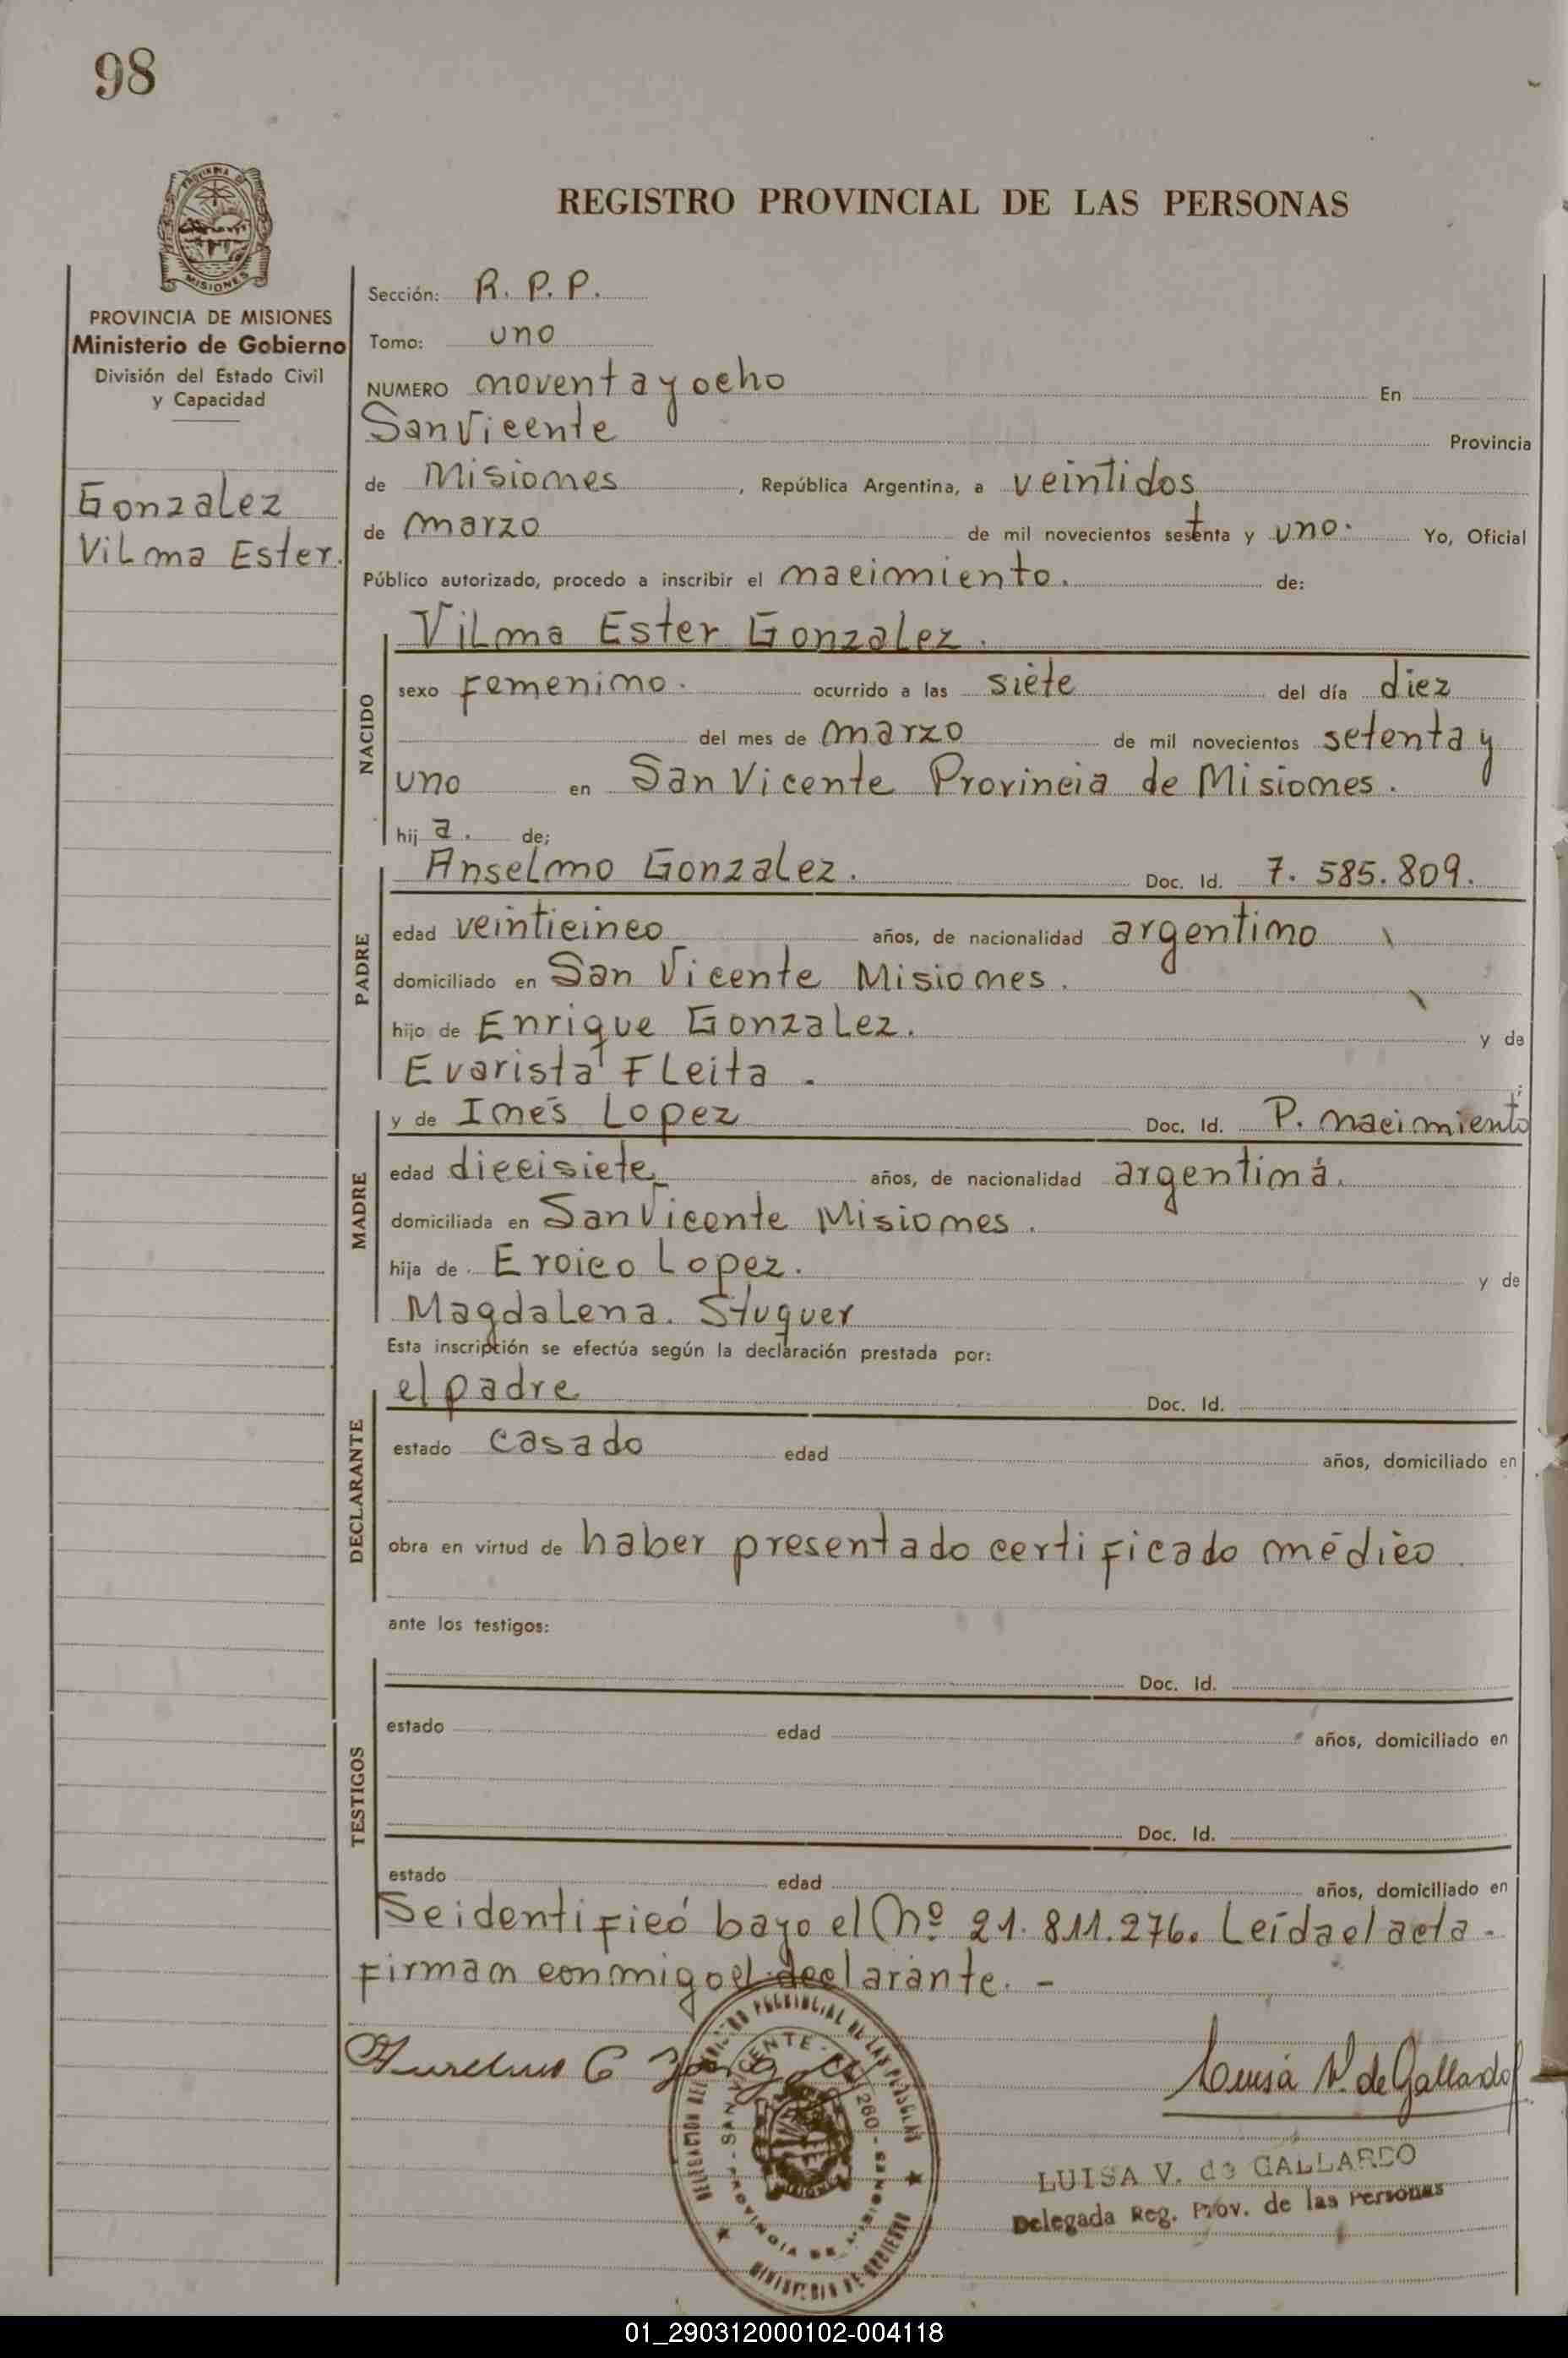 98
REGISTRO PROVINCIAL DE LAS PERSONAS
PROVINCIA DE
MISIONES
PROVINCIA DE MISIONES
Ministerio de Gobierno
División del Estado Civil
y Capacidad
Gonzalez
Vilma Ester.
Sección: R. P. P.
Tomo: uno
NUMERO noventa y ocho En
San Vicente Provincia
de Misiones, República Argentina, a veintidos
de marzo de mil novecientos setenta y uno. Yo, Oficial
Público autorizado, procedo a inscribir el nacimiento. de:
Vilma Ester Gonzalez.
NACIDO
sexo femenino. ocurrido a las siete del día diez
del mes de marzo de mil novecientos setenta y
uno en San Vicente Provincia de Misiones.
hij a. de;
PADRE
Anselmo Gonzalez. Doc. Id. 7.585.809.
edad veinticinco años, de nacionalidad argentino
domiciliado en San Vicente Misiones.
hijo de Enrique Gonzalez. y de
Evarista Fleita.
MADRE
y de Inés Lopez Doc. Id. P. nacimiento
edad diecisiete años, de nacionalidad argentina.
domiciliada en San Vicente Misiones.
hija de Eroico Lopez. y de
Magdalena. Stuquer
Esta inscripción se efectúa según la declaración prestada por:
DECLARANTE
el padre Doc. Id.
estado casado edad años, domiciliado en
obra en virtud de haber presentado certificado médico.
ante los testigos:
TESTIGOS
Doc. Id.
estado edad años, domiciliado en
Doc. Id.
estado edad años, domiciliado en
Se identificó bayo el Nº 21.811.276. Leída el acta-
firman conmigo el declarante.-
DELEGACION DEL REGISTRO PROVINCIAL DE LAS PERSONAS
SAN VICENTE 260 - PROVINCIA DE MISIONES
MINISTERIO DE GOBIERNO
Luisa V. de Gallardo
LUISA V. de GALLARDO
Delegada Reg. Prov. de las Personas
01_290312000102-004118